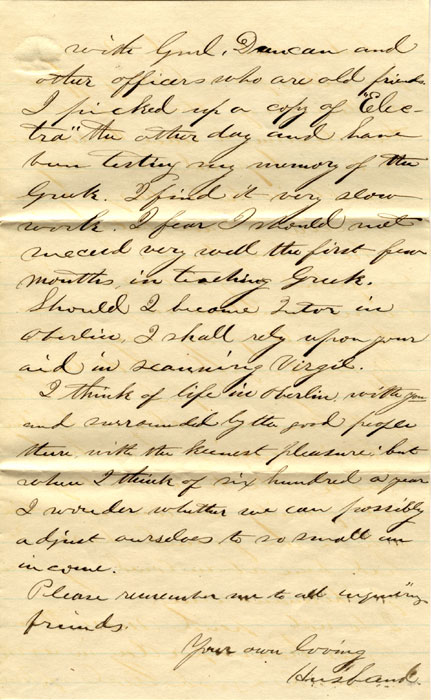 with Genl. Duncan and
other officers who are old friends.
I picked up a copy of "Elec-
tra" the other day and have
been testing my memory of the
Greek. I find it very slow
work. I fear I should not
succeed very well the first few
months, in teaching Greek.
Should I become Tutor in
Oberlin, I shall rely upon your
aid in scanning Virgil.
I think of life in Oberlin, with you
and surrounded by the good people
there, with the keenest pleasure; but
when I think of six hundred a year
I wonder whether we can possibly
adjust ourselves to so small an
income.
Please remember me to all inquiring
friends.
Your own loving
Husband.